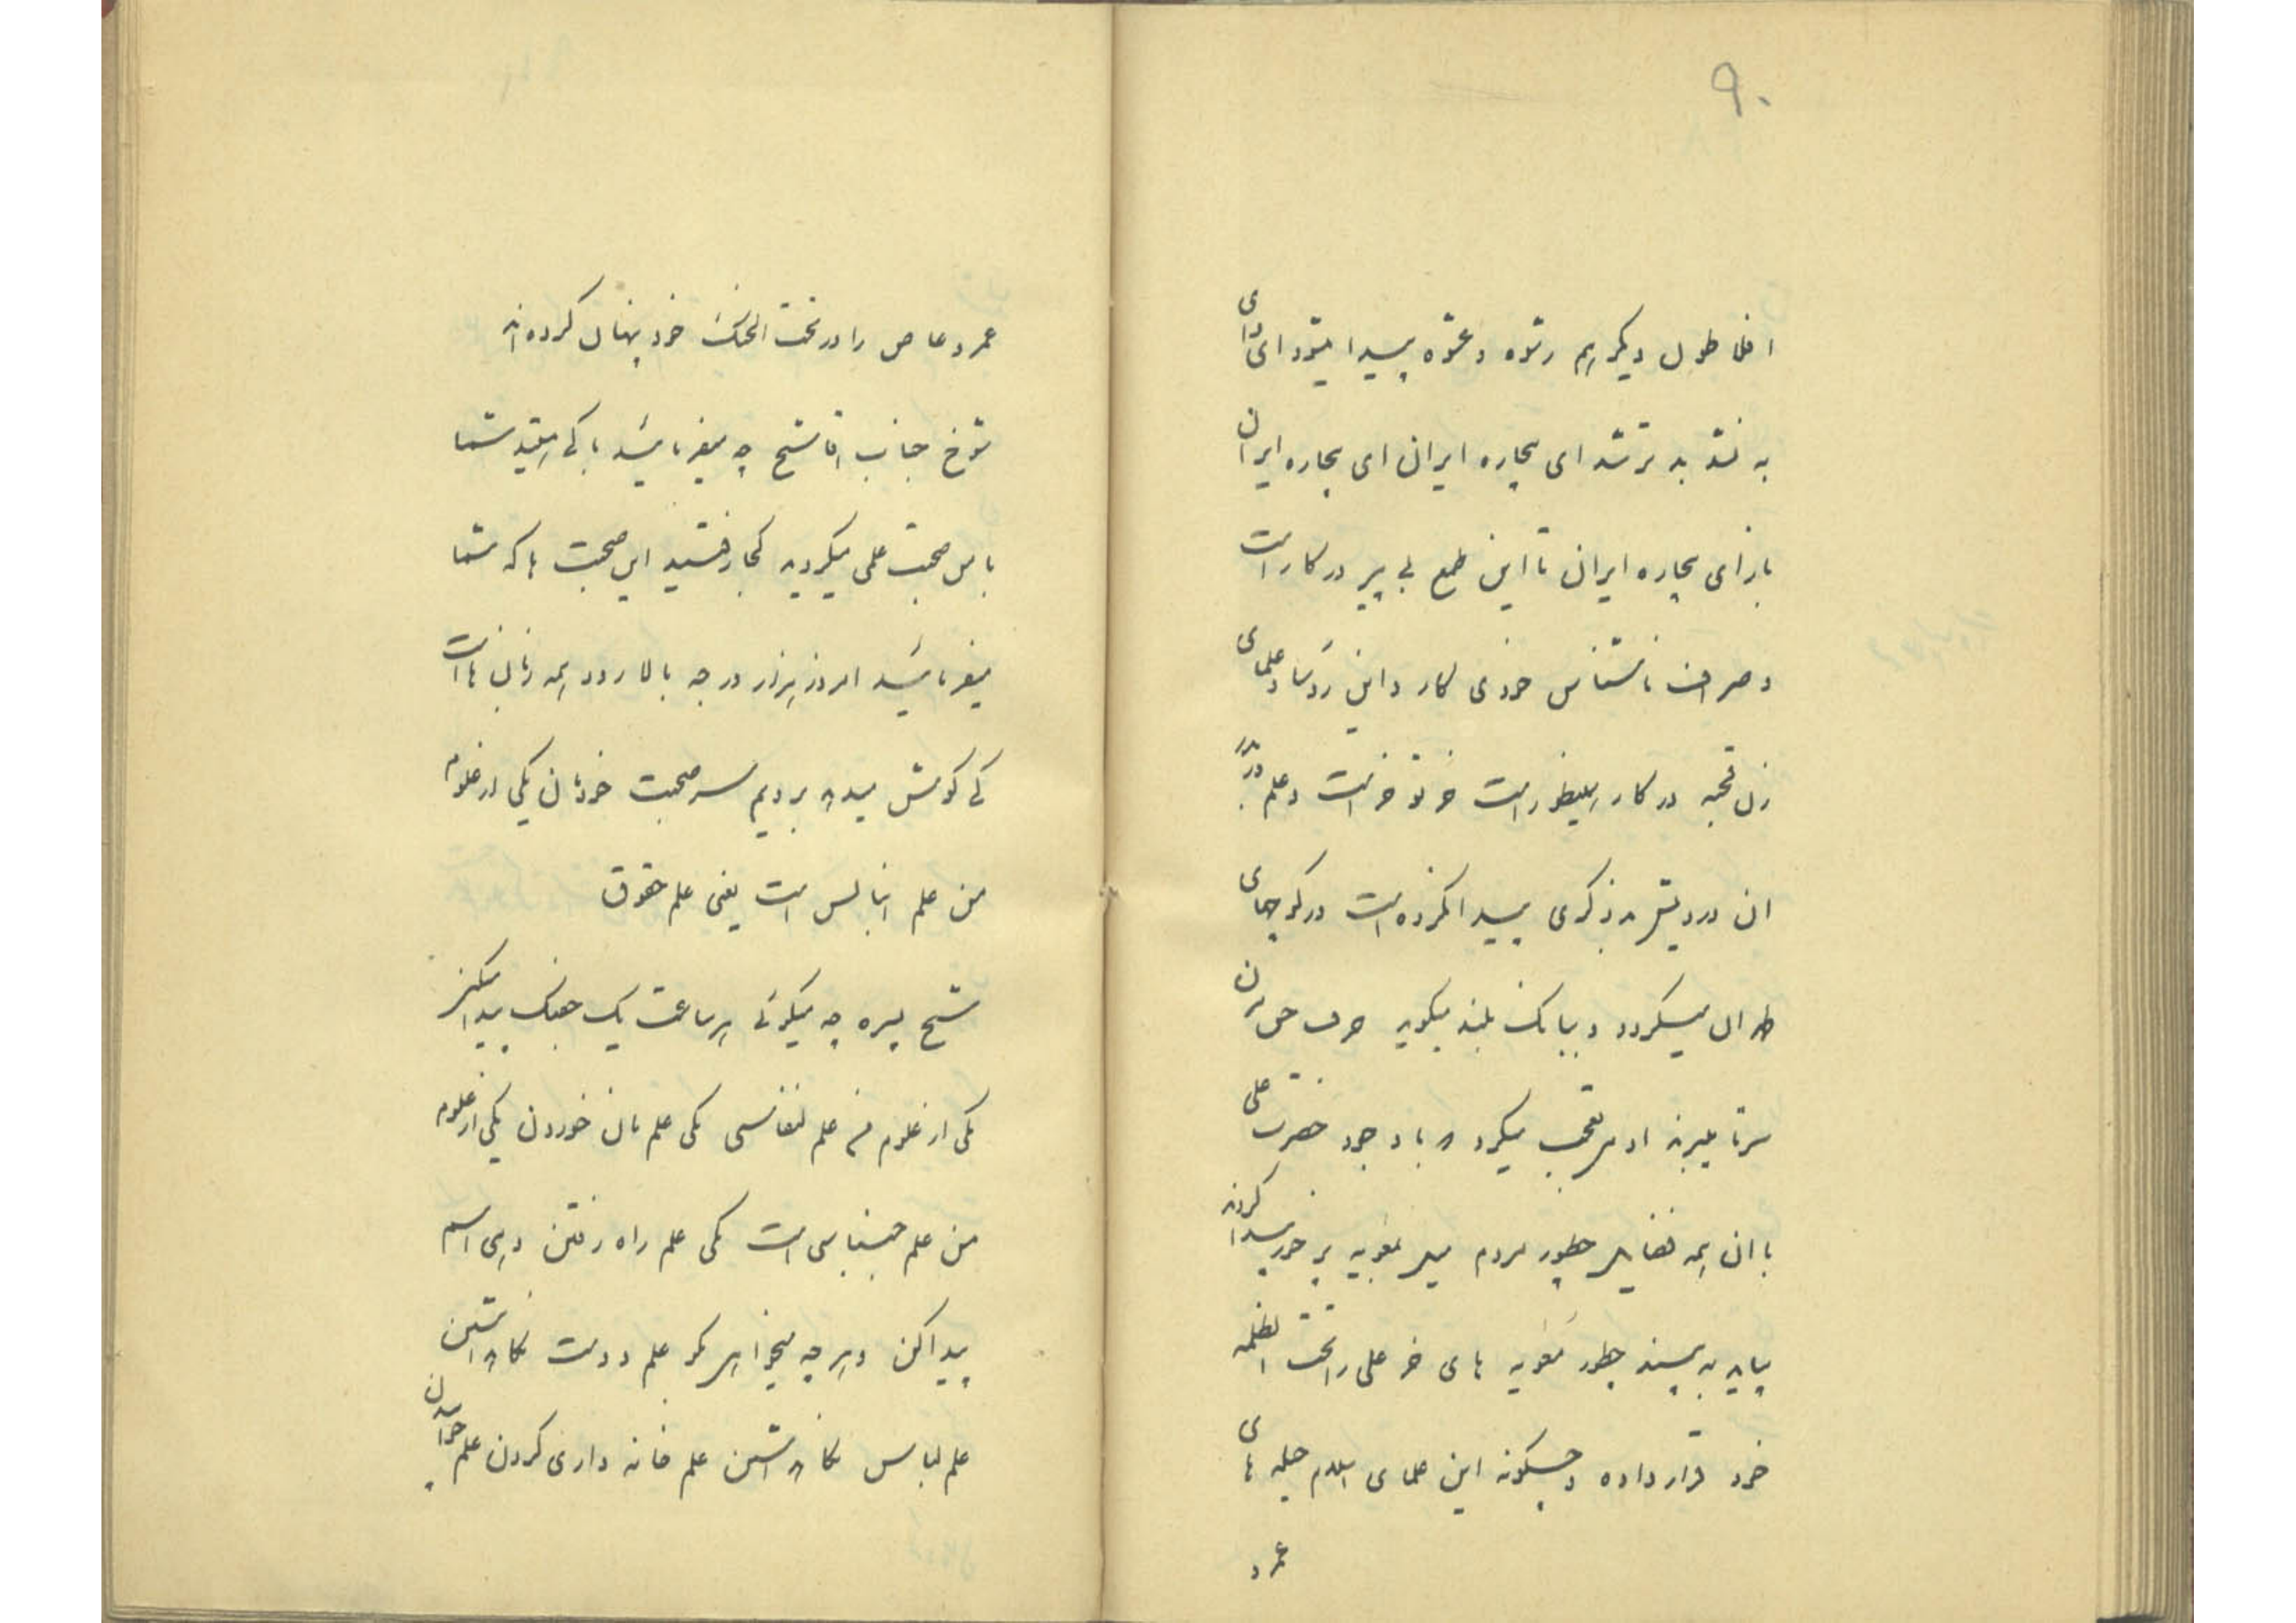 ۹۰
افلاطون دیگر هم رشوه و عشوه پیدا میشود ای وای
به نشد بدتر شد ای بیچاره ایران ای بیچاره ایران
باز ای بیچاره ایران تا این طمع بی پیر در کار است
و صراف ناشناس خودی کار و این رؤسا و علمای
زن قحبه در کار اینطور است خر تو خر است و علم
ان درویش ذکری پیدا کرده است در کوچهای
طهران میگردد و ببانک بلند میگوید حرف حق نزن
سرتا میبرند ادم تعجب میکرد که با وجود حضرت علی
با ان همه فضایل چطور مردم میل بمعویه پر خور پیدا کردند
بیاید به بیند چطور معویه های خر علی را تحت الظلمه
خود قرار داده و چگونه این علمای اسلام حیله های
عمرو
عمرو عاص را در تحت الحنک خود پنهان کرده اند
شوخ جناب اقا شیخ چه میفرمائید با کی هستید شما
با من صحبت علمی میکردید کجا رفتید این صحبت ها که شما
میفرمائید امروز هزار درجه بالا رود همه زبان ها است
کی گوش میدهد برویم سر صحبت خودمان یکی از علوم
من علم است یعنی علم حقوق
شیخ پسره چه میگوئی هر ساعت یک جفنک پیدا میکنی
یکی از علوم من علم یکی علم نان خوردن یکی از علوم
من علم است یکی علم راه رفتن دهی اسم
پیدا کن و هر چه میخواهی بگو علم دوست نگاهداشتن
علم لباس نگاهداشتن علم خانه داری کردن علم